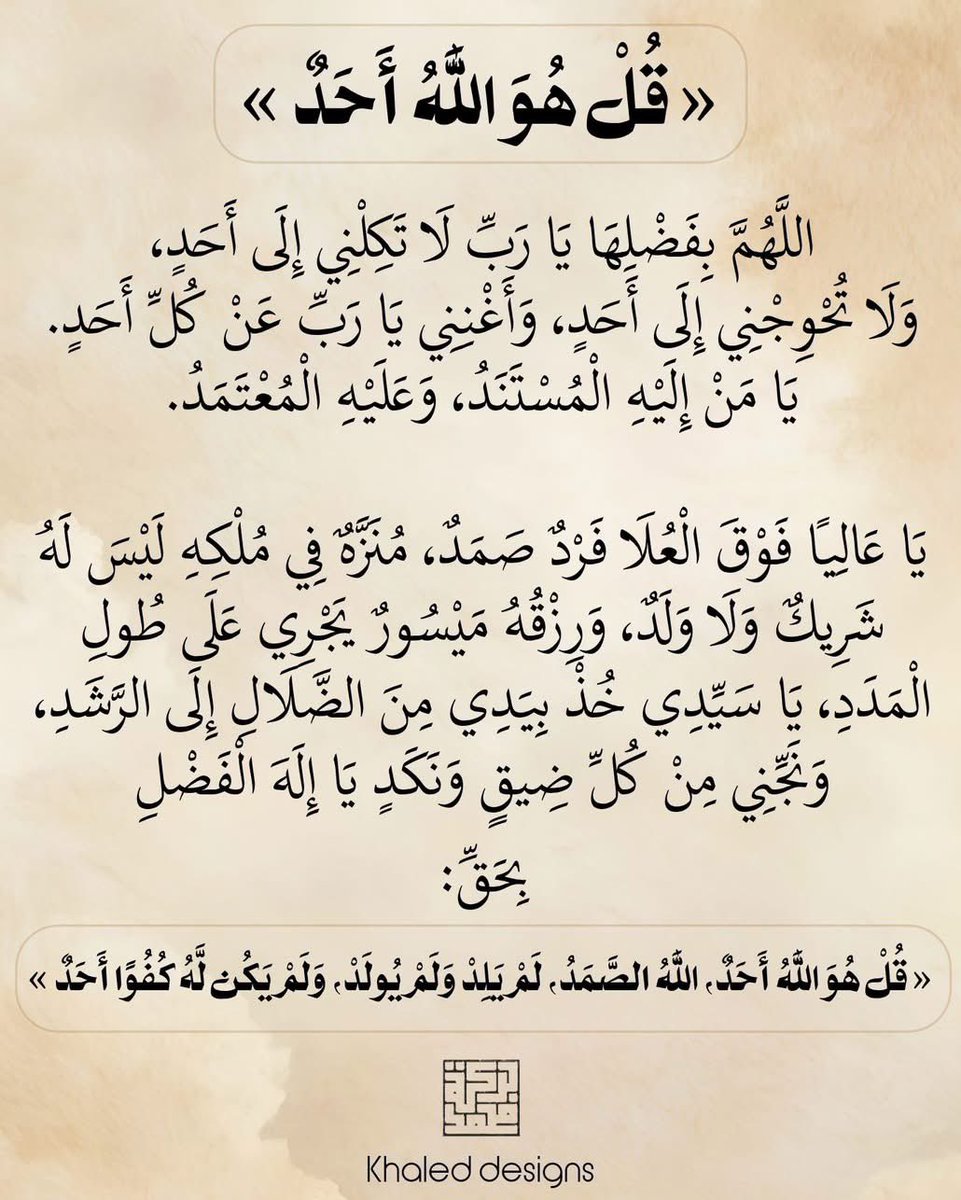 « قُلْ هُوَ اللَّهُ أَحَدٌ »
اللَّهُمَّ بِفَضْلِهَا يَا رَبِّ لَا تَكِلْنِي إِلَى أَحَدٍ،
وَلَا تُحْوِجْنِي إِلَى أَحَدٍ، وَأَغْنِنِي يَا رَبِّ عَنْ كُلِّ أَحَدٍ.
يَا مَنْ إِلَيْهِ الْمُسْتَنَدُ، وَعَلَيْهِ الْمُعْتَمَدُ.
يَا عَالِيًا فَوْقَ الْعُلَا فَرْدٌ صَمَدٌ، مُنَزَّهٌ فِي مُلْكِهِ لَيْسَ لَهُ
شَرِيكٌ وَلَا وَلَدٌ، وَرِزْقُهُ مَيْسُورٌ يَجْرِي عَلَى طُولِ
الْمَدَدِ، يَا سَيِّدِي خُذْ بِيَدِي مِنَ الضَّلَالِ إِلَى الرَّشَدِ،
وَنَجِّنِي مِنْ كُلِّ ضِيقٍ وَنَكَدٍ يَا إِلَهَ الْفَضْلِ
بِحَقِّ:
« قُلْ هُوَ اللَّهُ أَحَدٌ، اللَّهُ الصَّمَدُ، لَمْ يَلِدْ وَلَمْ يُولَدْ، وَلَمْ يَكُن لَّهُ كُفُوًا أَحَدٌ »
Khaled designs